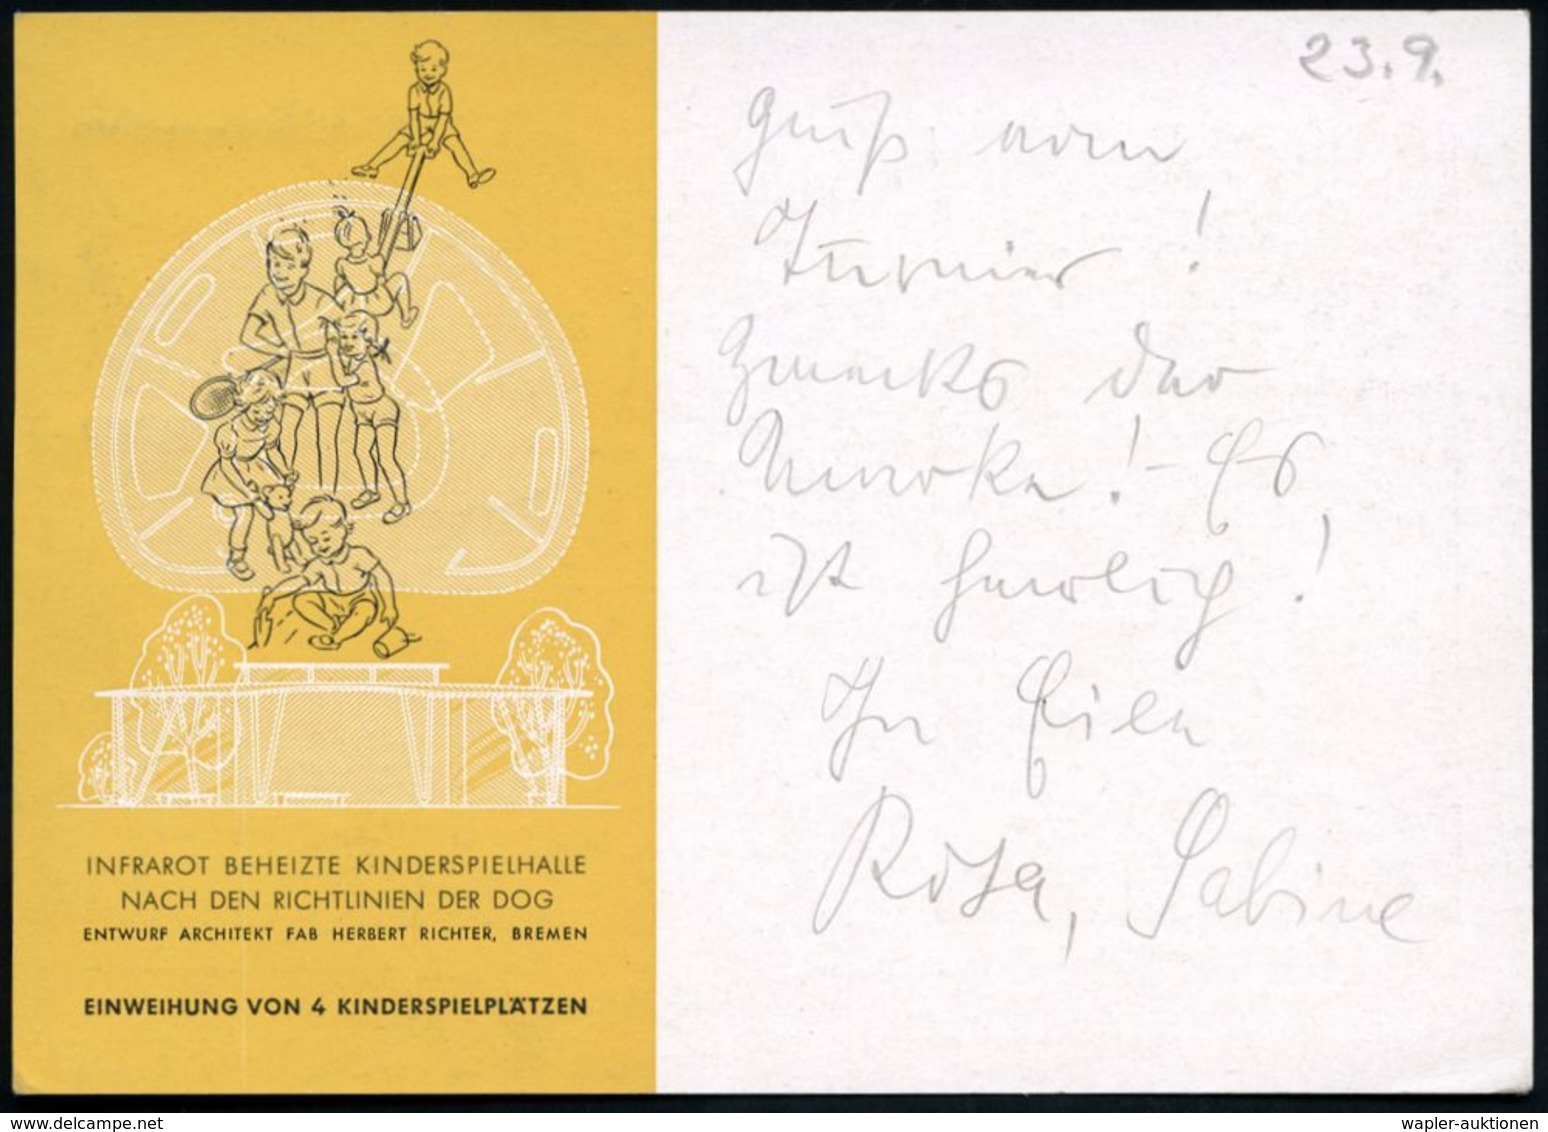 INFRAROT BEHEIZTE KINDERSPIELHALLE
NACH DEN RICHTLINIEN DER DOG
ENTWURF ARCHITEKT FAB HERBERT RICHTER, BREMEN
EINWEIHUNG VON 4 KINDERSPIELPLÄTZEN
23.9.
Gruß vom
Turnier!
Zwecks der
Marke! - Es
ist herrlich!
In Eile
Rosa, Sabine
delcampe.net
wapler-auktionen